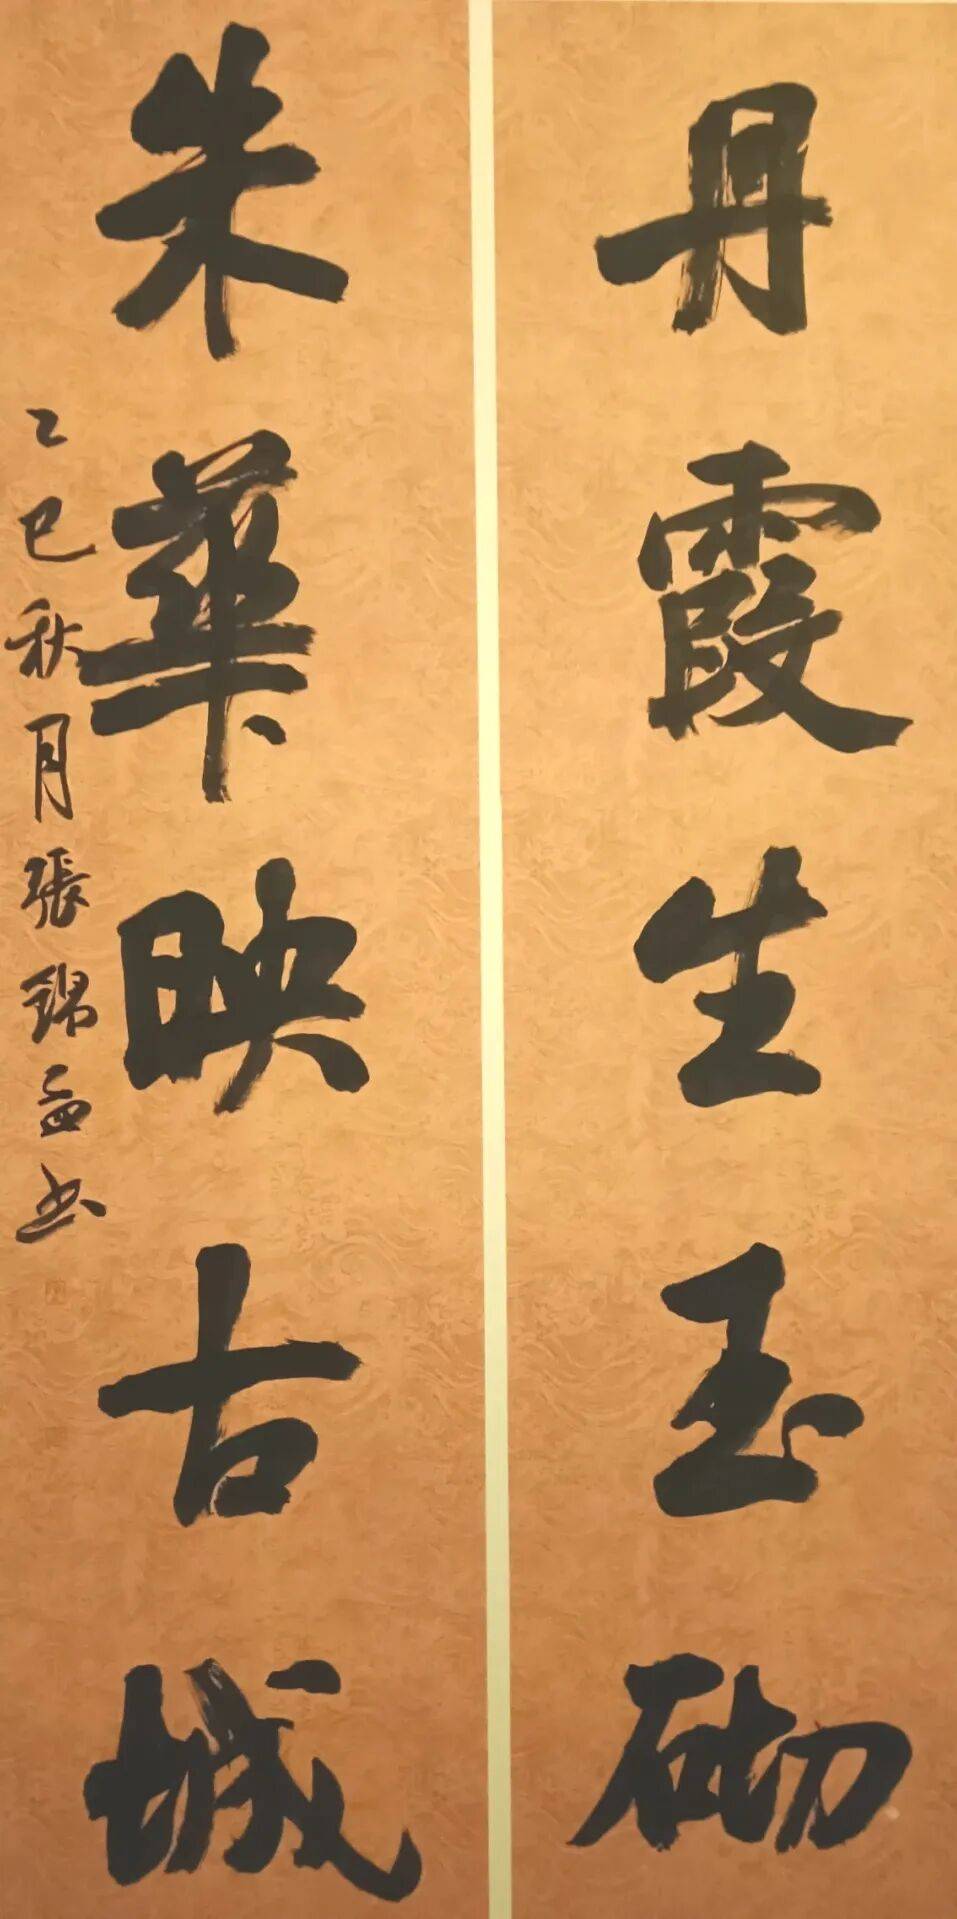 丹霞生玉砌
朱華映古城
乙巳秋月張錦益书